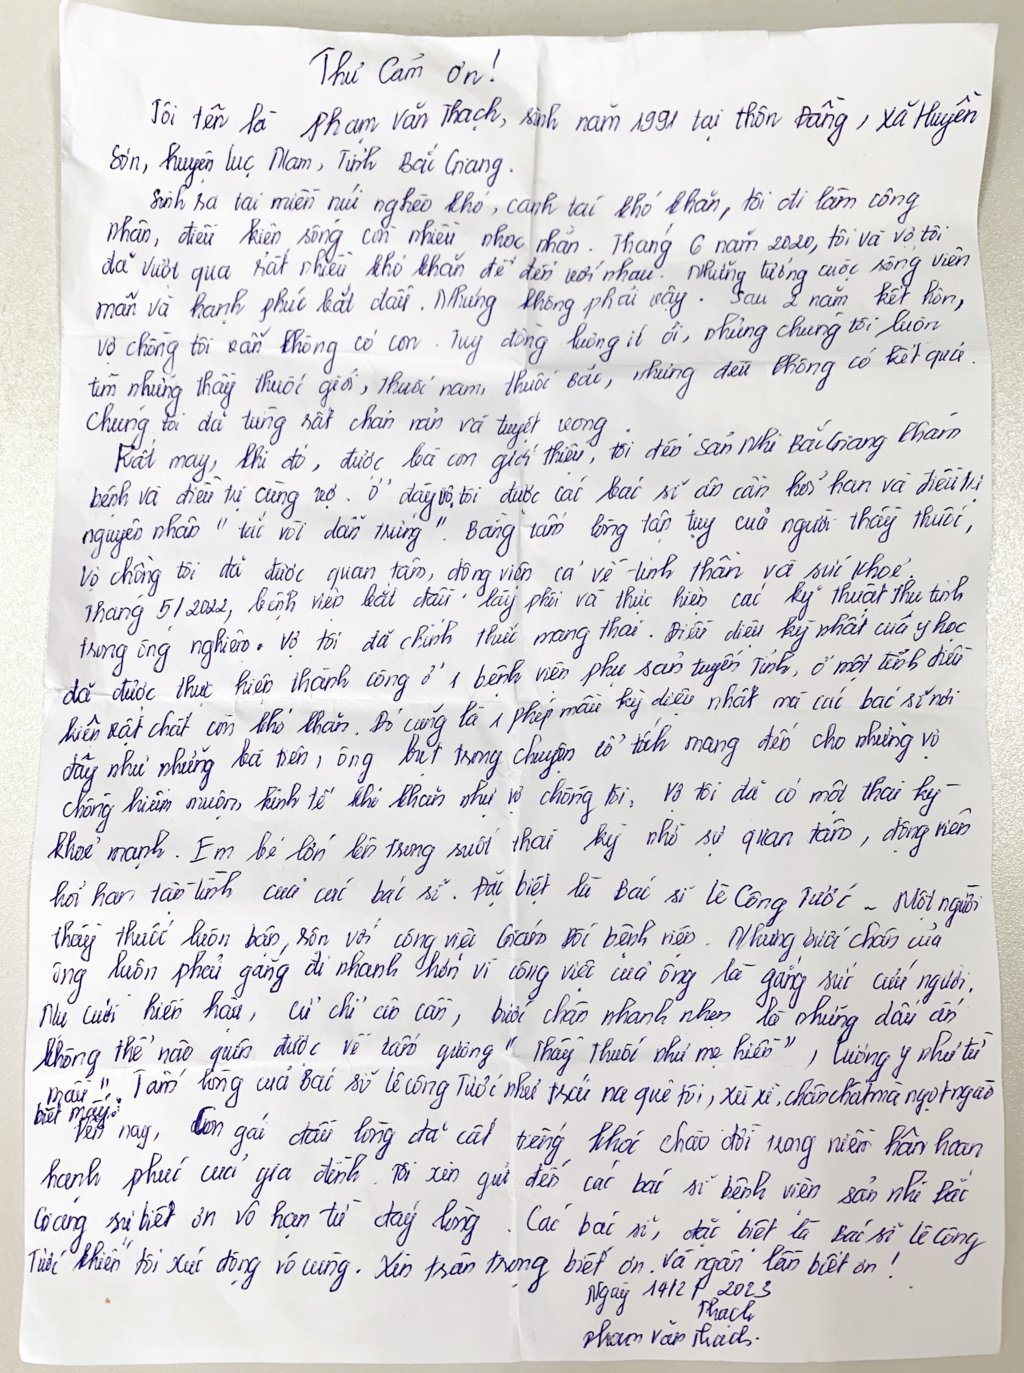 Thư Cảm ơn!
Tôi tên là Phạm Văn Thạch, sinh năm 1991 tại thôn Đồng, xã Huyền
Sơn, huyện Lục Nam, Tỉnh Bắc Giang.
Sinh ra tại miền núi nghèo khó, canh tác khó khăn, tôi đi làm công
nhân, điều kiện sống còn nhiều nhọc nhằn. Tháng 6 năm 2020, tôi và vợ tôi
đã vượt qua rất nhiều khó khăn để đến với nhau. Những tưởng cuộc sống viên
mãn và hạnh phúc bắt đầu. Nhưng không phải vậy. Sau 2 năm kết hôn,
vợ chồng tôi vẫn không có con. Tuy đồng lương ít ỏi, nhưng chúng tôi luôn
tìm những thầy thuốc giỏi, thuốc nam, thuốc bắc, nhưng đều không có kết quả.
Chúng tôi đã từng rất chán nản và tuyệt vọng.
Rất may, khi đó, được bà con giới thiệu, tôi đến Sản Nhi Bắc Giang khám
bệnh và điều trị cùng vợ. Ở đây vợ tôi được các bác sĩ ân cần hỏi han và điều trị
nguyên nhân "tắc vòi dẫn trứng". Bằng tấm lòng tận tụy của người thầy thuốc,
vợ chồng tôi đã được quan tâm, động viên cả về tinh thần và sức khoẻ.
Tháng 5/2022, bệnh viện bắt đầu lấy phôi và thực hiện các kỹ thuật thụ tinh
trong ống nghiệm. Vợ tôi đã chính thức mang thai. Điều diệu kỳ nhất của y học
đã được thực hiện thành công ở 1 bệnh viện phụ sản tuyến tỉnh, ở một tỉnh điều
kiện vật chất còn khó khăn. Đó cũng là 1 phép mầu kỳ diệu nhất mà các bác sĩ nơi
đây như những bà tiên, ông bụt trong chuyện cổ tích mang đến cho những vợ
chồng hiếm muộn, kinh tế khó khăn như vợ chồng tôi. Vợ tôi đã có một thai kỳ
khoẻ mạnh. Em bé lớn lên trong suốt thai kỳ nhờ sự quan tâm, động viên
hỏi han tận tình của các bác sĩ. Đặc biệt là Bác sĩ Lê Công Tước - Một người
thầy thuốc luôn bận rộn với công việc Giám đốc bệnh viện. Những bước chân của
ông luôn phải gắng đi nhanh hơn vì công việc của ông là gắng sức cứu người.
Nụ cười hiền hậu, cử chỉ ân cần, bước chân nhanh nhẹn là những dấu ấn
không thể nào quên được về tấm gương "Thầy thuốc như mẹ hiền", lương y như từ
mẫu". Tấm lòng của Bác sĩ Lê Công Tước như trái na quê tôi, xù xì, chân chất mà ngọt ngào
biết mấy.
Đến nay, Con gái đầu lòng đã cất tiếng khóc chào đời trong niềm hân hoan
hạnh phúc của gia đình. Tôi xin gửi đến các bác sĩ bệnh viện sản nhi Bắc
Giang sự biết ơn vô hạn từ đáy lòng. Các bác sĩ, đặc biệt là Bác sĩ Lê Công
Tước khiến tôi xúc động vô cùng. Xin trân trọng biết ơn và ngàn lần biết ơn!
Ngày 14/2/2023
Thạch
Phạm Văn Thạch.